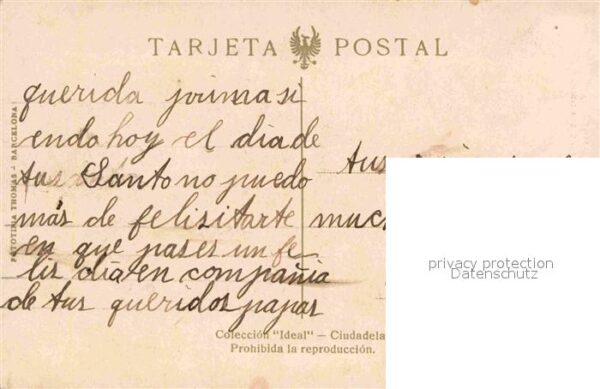 TARJETA POSTAL
querida prima si
endo hoy el dia de
tus Santo no puedo
más de felisitarte
en que pases un fe
lis dia en compañia
de tus queridos papas
tus
FOTOTIPIA THOMAS - BARCELONA
Colección "Ideal" — Ciudadela
Prohibida la reproducción.
privacy protection
Datenschutz